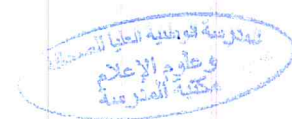 المدرسة الوطنية العليا للصحافة
وعلوم الإعلام
مكتبة المدرسة